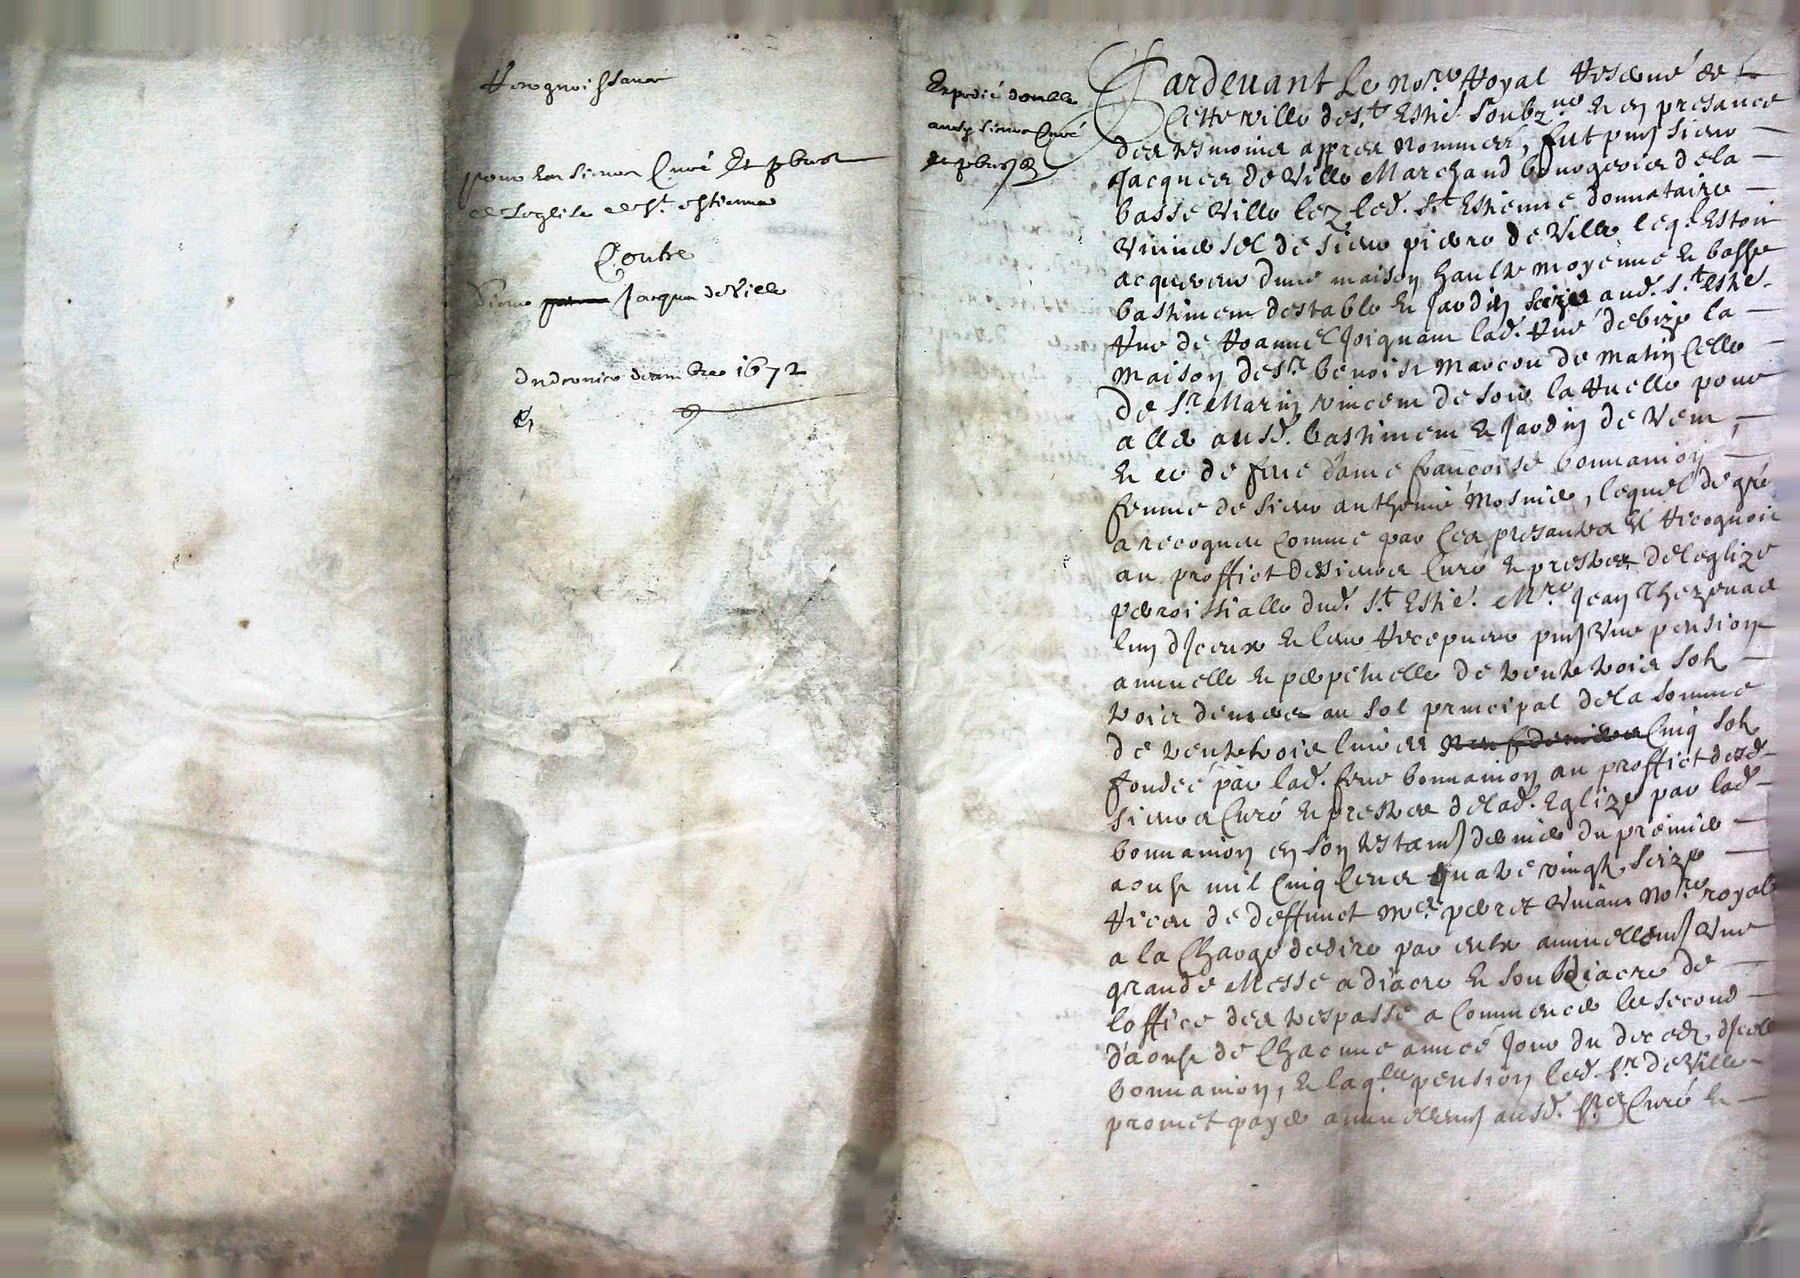 Recognoissance
pour les sieurs Curé Et pbres
de Leglise de St. Estienne
Contre
Sieur Jacques deVille
du dernier decembre 1672
Expedié double
ausd sieurs Curé
et pbres
Pardevant Le Nore Royal Reservé de
Cette ville de St Estne Soubzné et en presance
des tesmoins appres Nommés, fut pnt sieur
Jacques de Ville Marchand bourgeois de la
basse Ville lez led. St Estienne donnataire
de sieur pierre de Ville leql Estoit
acquereur dune maison haulte moyenne et basse
bastiment destable et Jardin size aud. St Estne.
Rue de Roannel Joignant lad. Rue de bize la
maison de Sr. benoist Marcou de matin Celle
de Sr. Marin vincent de soir la Ruelle pour
aller ausd. bastiment et Jardin de vent,
et ce de feue dame francoise bonnanion
femme de sieur anthoine Mosnier, lequel de gré
a recogneu comme par ces presantes Il recognoit
au proffict desieurs Curé et prestres de leglize
parroissialle dud. St Estie. Mre Jean Thezenas
lun diceux et leur Recepveur pnt Une pension
annuelle et perpetuelle de trente trois sols
trois deniers au sol principal de la somme
de trente trois livres Cinq sols
fondee par lad. feue bonnanion au proffict desd.
sieurs Curé et prestres de lad. Eglize par lad.
bonnanion en son testamt dernier du premier
aoust mil Cinq Cens quatre vingts seize
Receu de deffunct Me. Nore royal
a la Charge de dire par entre annuellemt Une
grande Messe a diacre et soubdiacre de
loffice des trespassé a Commencer le second
d'aoust de Chacune année Jour du deces dicelle
bonnanion, et laqlle pension led. Sr. deVille
promet payer annuellemt ausd. Srs Curé et